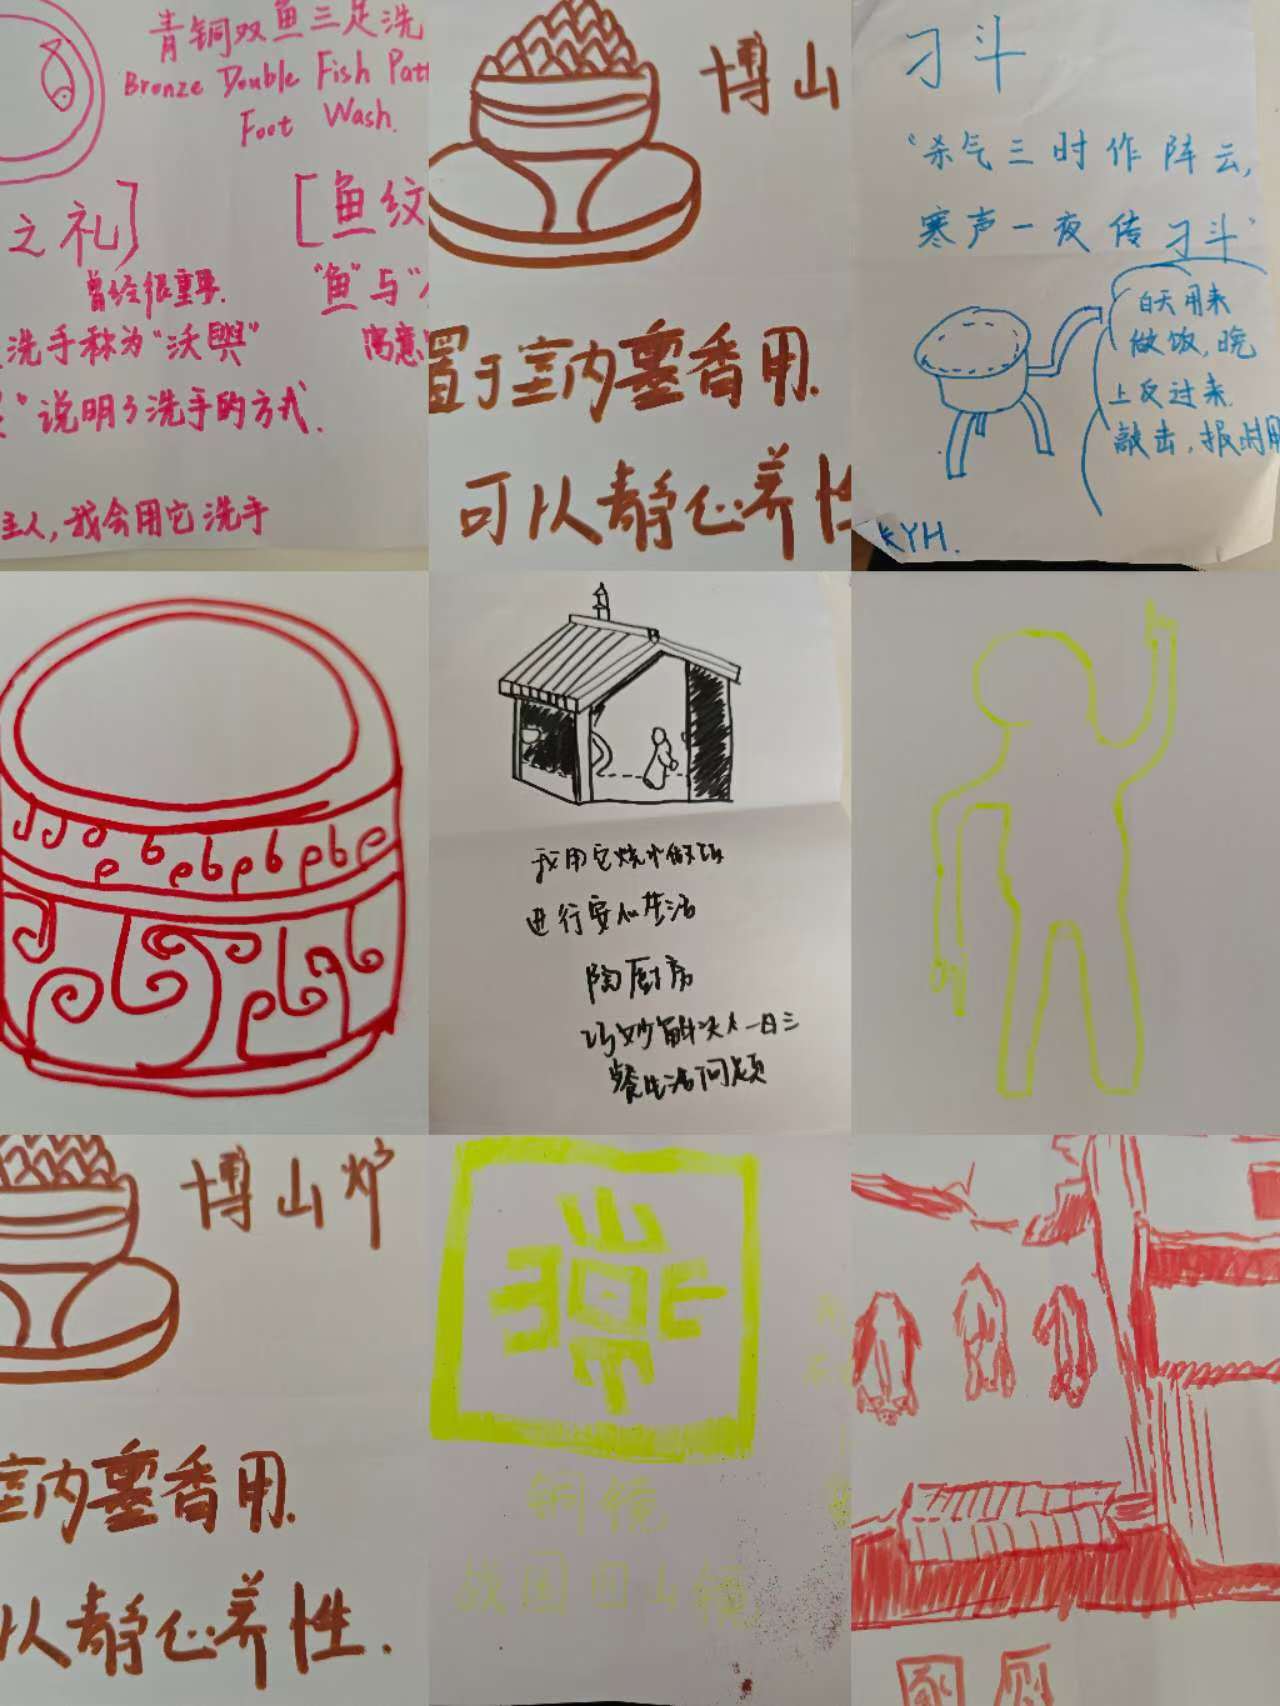 青铜双鱼三足洗
Bronze Double Fish Patt
Foot Wash.
之礼]
[鱼纹
曾经很重要.
"鱼"与"
洗手称为"沃
寓意
"说明了洗手的方式.
主人,我会用它洗手
博山
置于室内熏香用.
可以静心养性
刁斗
"杀气三时作阵云,
寒声一夜传刁斗"
白天用来
做饭,晚
上反过来.
敲击,报时用
KYH.
我用它烧水做饭
进行安心生活
陶厨房
巧妙解决人一日三
餐生活问题
博山炉
室内熏香用.
以静心养性.
铜镜
战国四山镜